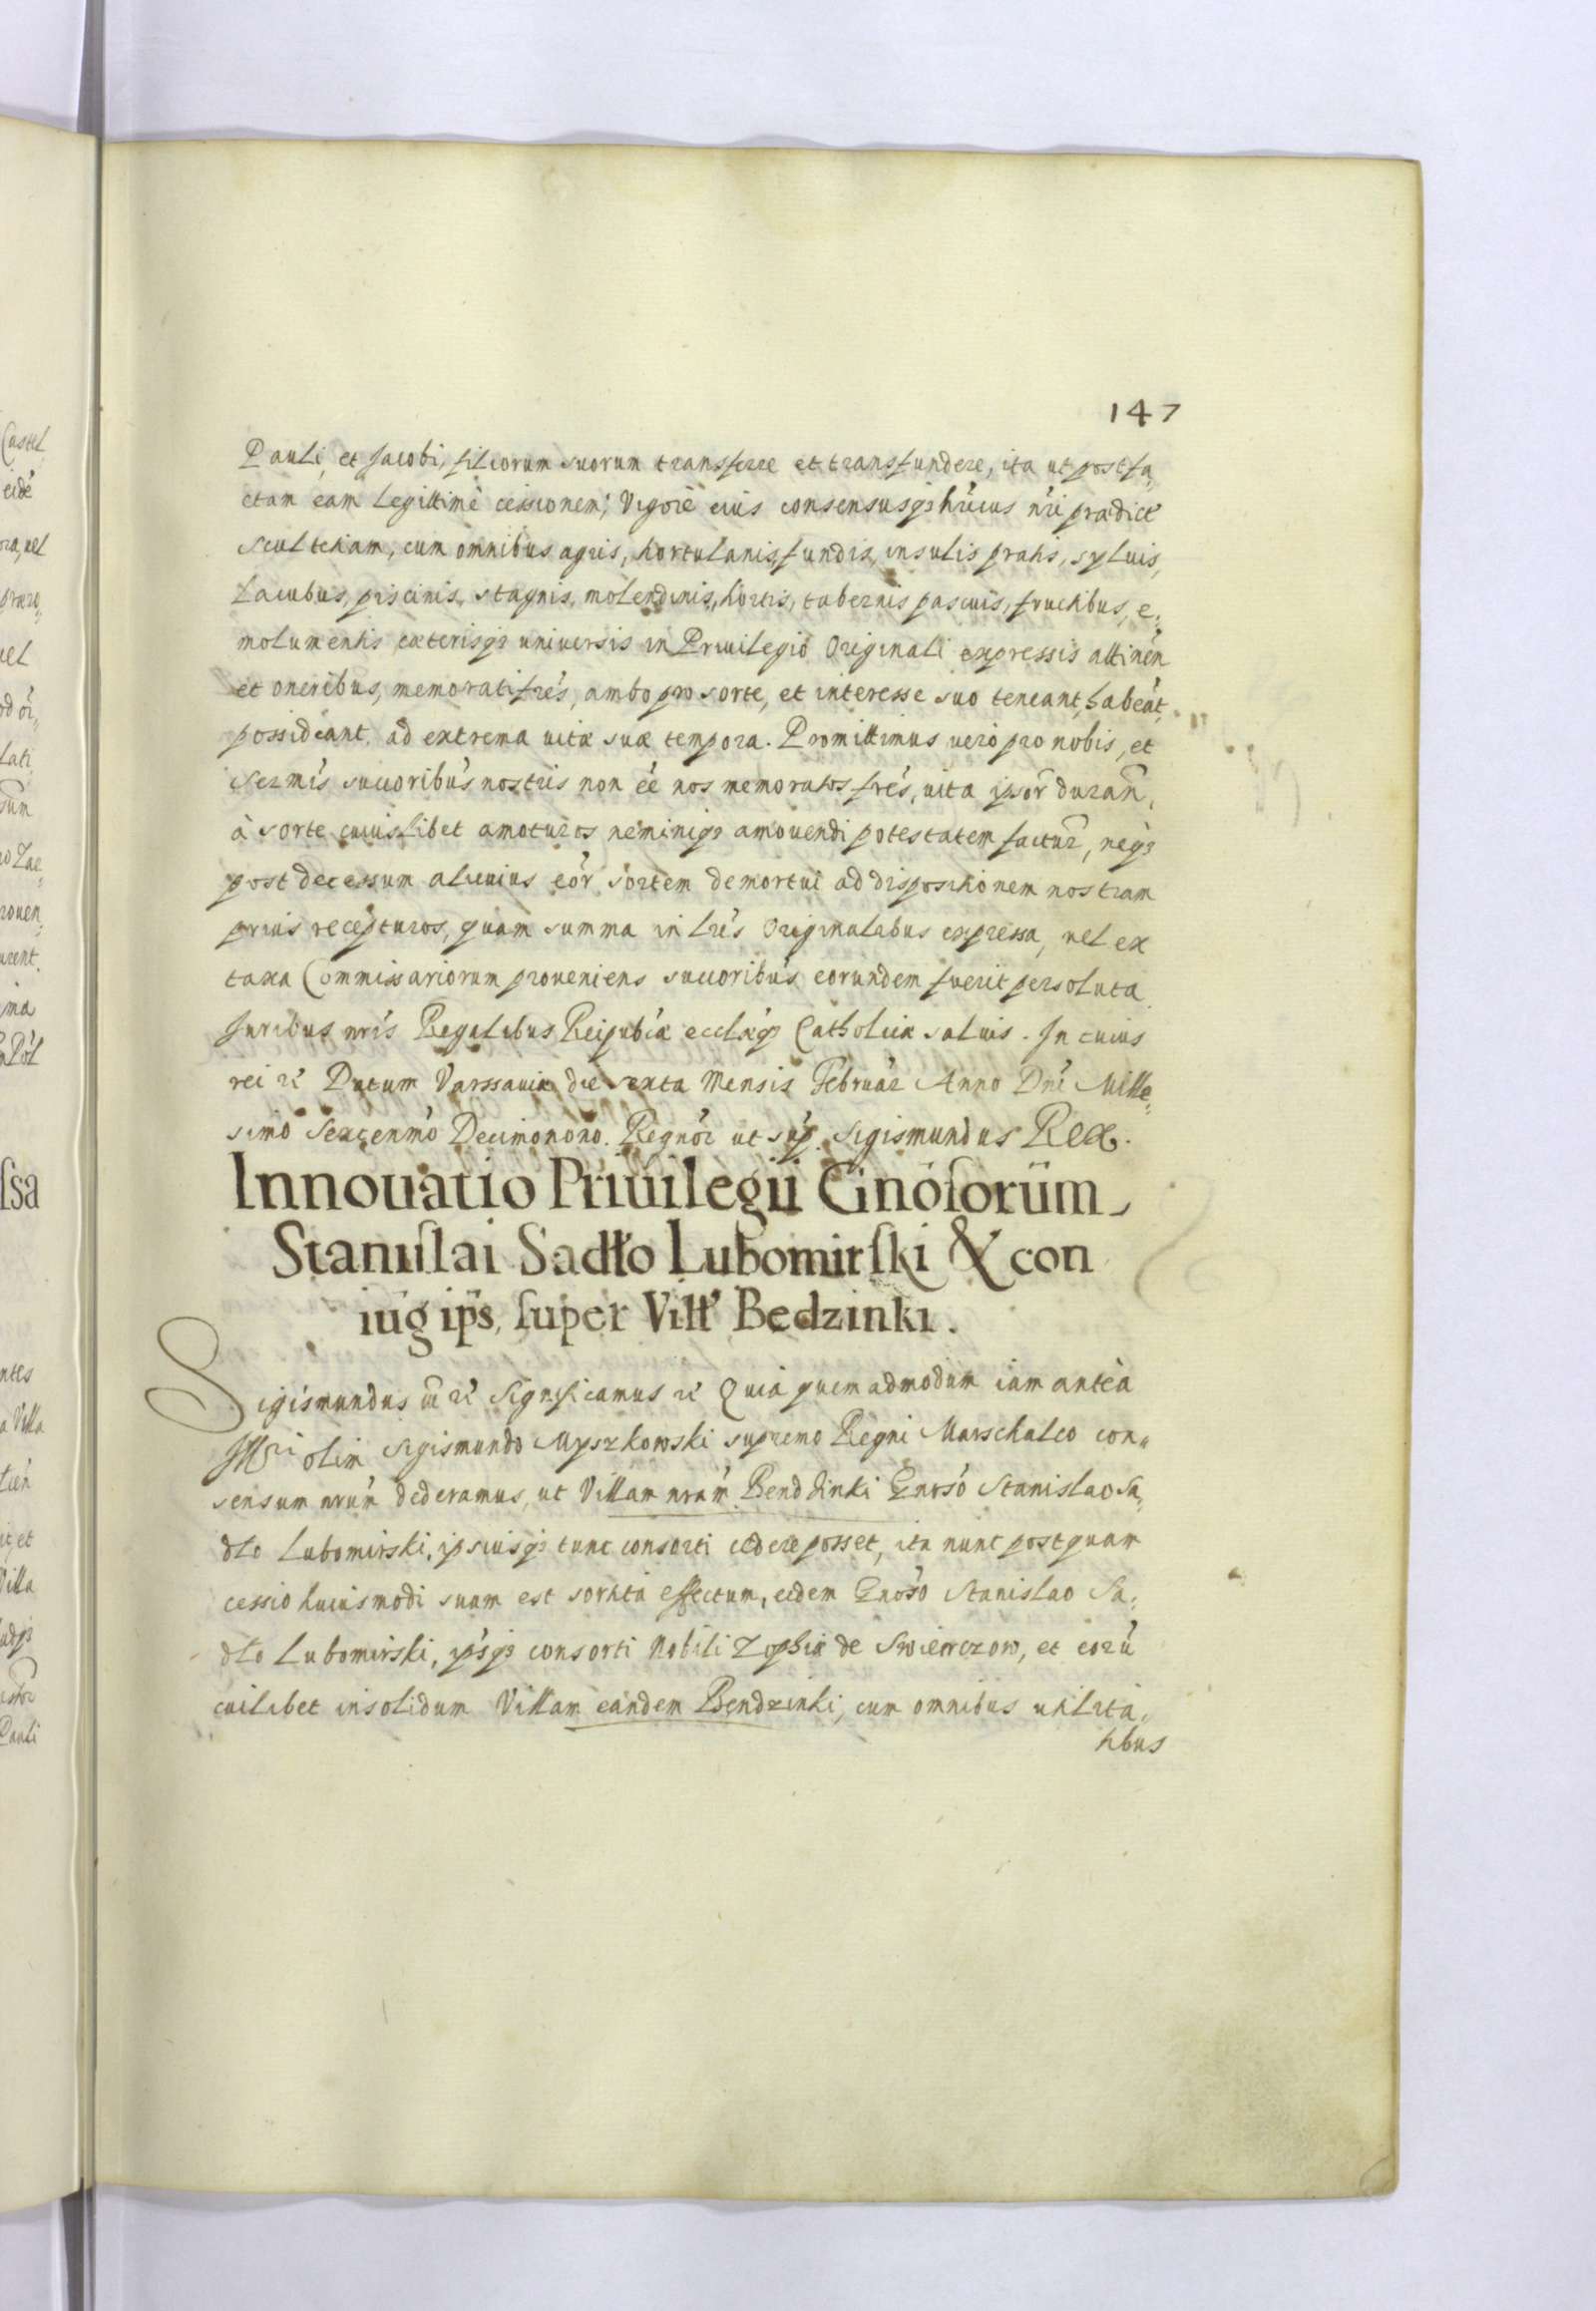 147
Pauli et Jacobi, filiorum suorum transferre et transfundere, ita ut post fa„
ctam eam legittimè cessionem, Vigorè eius consensusq3 húius nři prædict
Scultetiam, cum omnibus agris, hortulanis, fundis, insulis pratis, syluis,
Lacubus, piscinis, stagnis, molendinis, hortis, tabernis pascuis, fructibus, e„
molumentis cæterisq3 uniuersis in Priuilegio Originali expressis attinen
et oneribus, memorati frēs, ambo pro sorte, et interesse suo teneant, habeāt,
possideant, ad extrema uitæ suæ tempora. Promittimus vero pro nobis, et
Sermīs succoribūs nostris non ēe nos memoratos frēs, uita ipsor̄ duran̄,
à sorte cuiuslibet amoturos neminiq3 amouendi potestatem factur̄, neq3
post decessum alicuius eōr sortem demortui ad dispositionem nostram
prius recepturos, quam summa in lrīs Originalibus expressa, uel ex
taxa Commissariorum proueniens succoribūs eorundem fuerit persoluta
Juribus nrīs Regalibus Reipubcæ ecclæq3 Catholicæ saluis. In cuius
rei r̄c Datum Varssauiæ die sexta Mensis Februār Anno Dnī Mille„
simo Sexcenm̄o Decimonono. Regnōr ut sup̄. Sigismundus Rex.
Innouatio Priuilegii Gnōsorum
Stanislai Sadło Lubomirski & con
iug ip̄s, super Vill' Bedzinki.
Sigismundus iii r̄c Significamus r̄c Quia quemadmodum iam antèa
Illri olim Sigismundo Myszkowski supremo Regni Marschalco con„
sensum nrūm dederamus, ut Villam nrām Bendzinki Gnrsō Stanislao Sa„
dło Lubomirski, ipsiusq3 tunc consorti cedere posset, ita nunc postquam
cessio huiusmodi suum est sortita effectum, eidem Gnōso Stanislao Sa„
dło Lubomirski, ip̄sq3 consorti Nobili Zophiæ de Swierczow, et eorū
cuilibet insolidum Villam eandem Bendzinki, cum omnibus utilita„
tibus